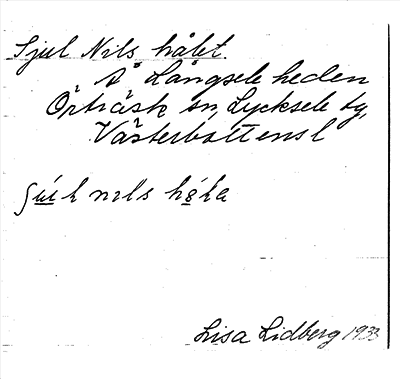 Sjul Nils hålet.
Å Långsele heden
Örträsk sn, Lycksele tg,
Västerbottens l
nils
Lisa Lidberg 1933